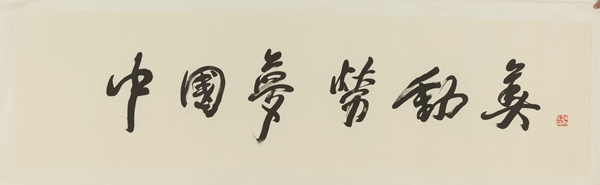 中國夢勞動美